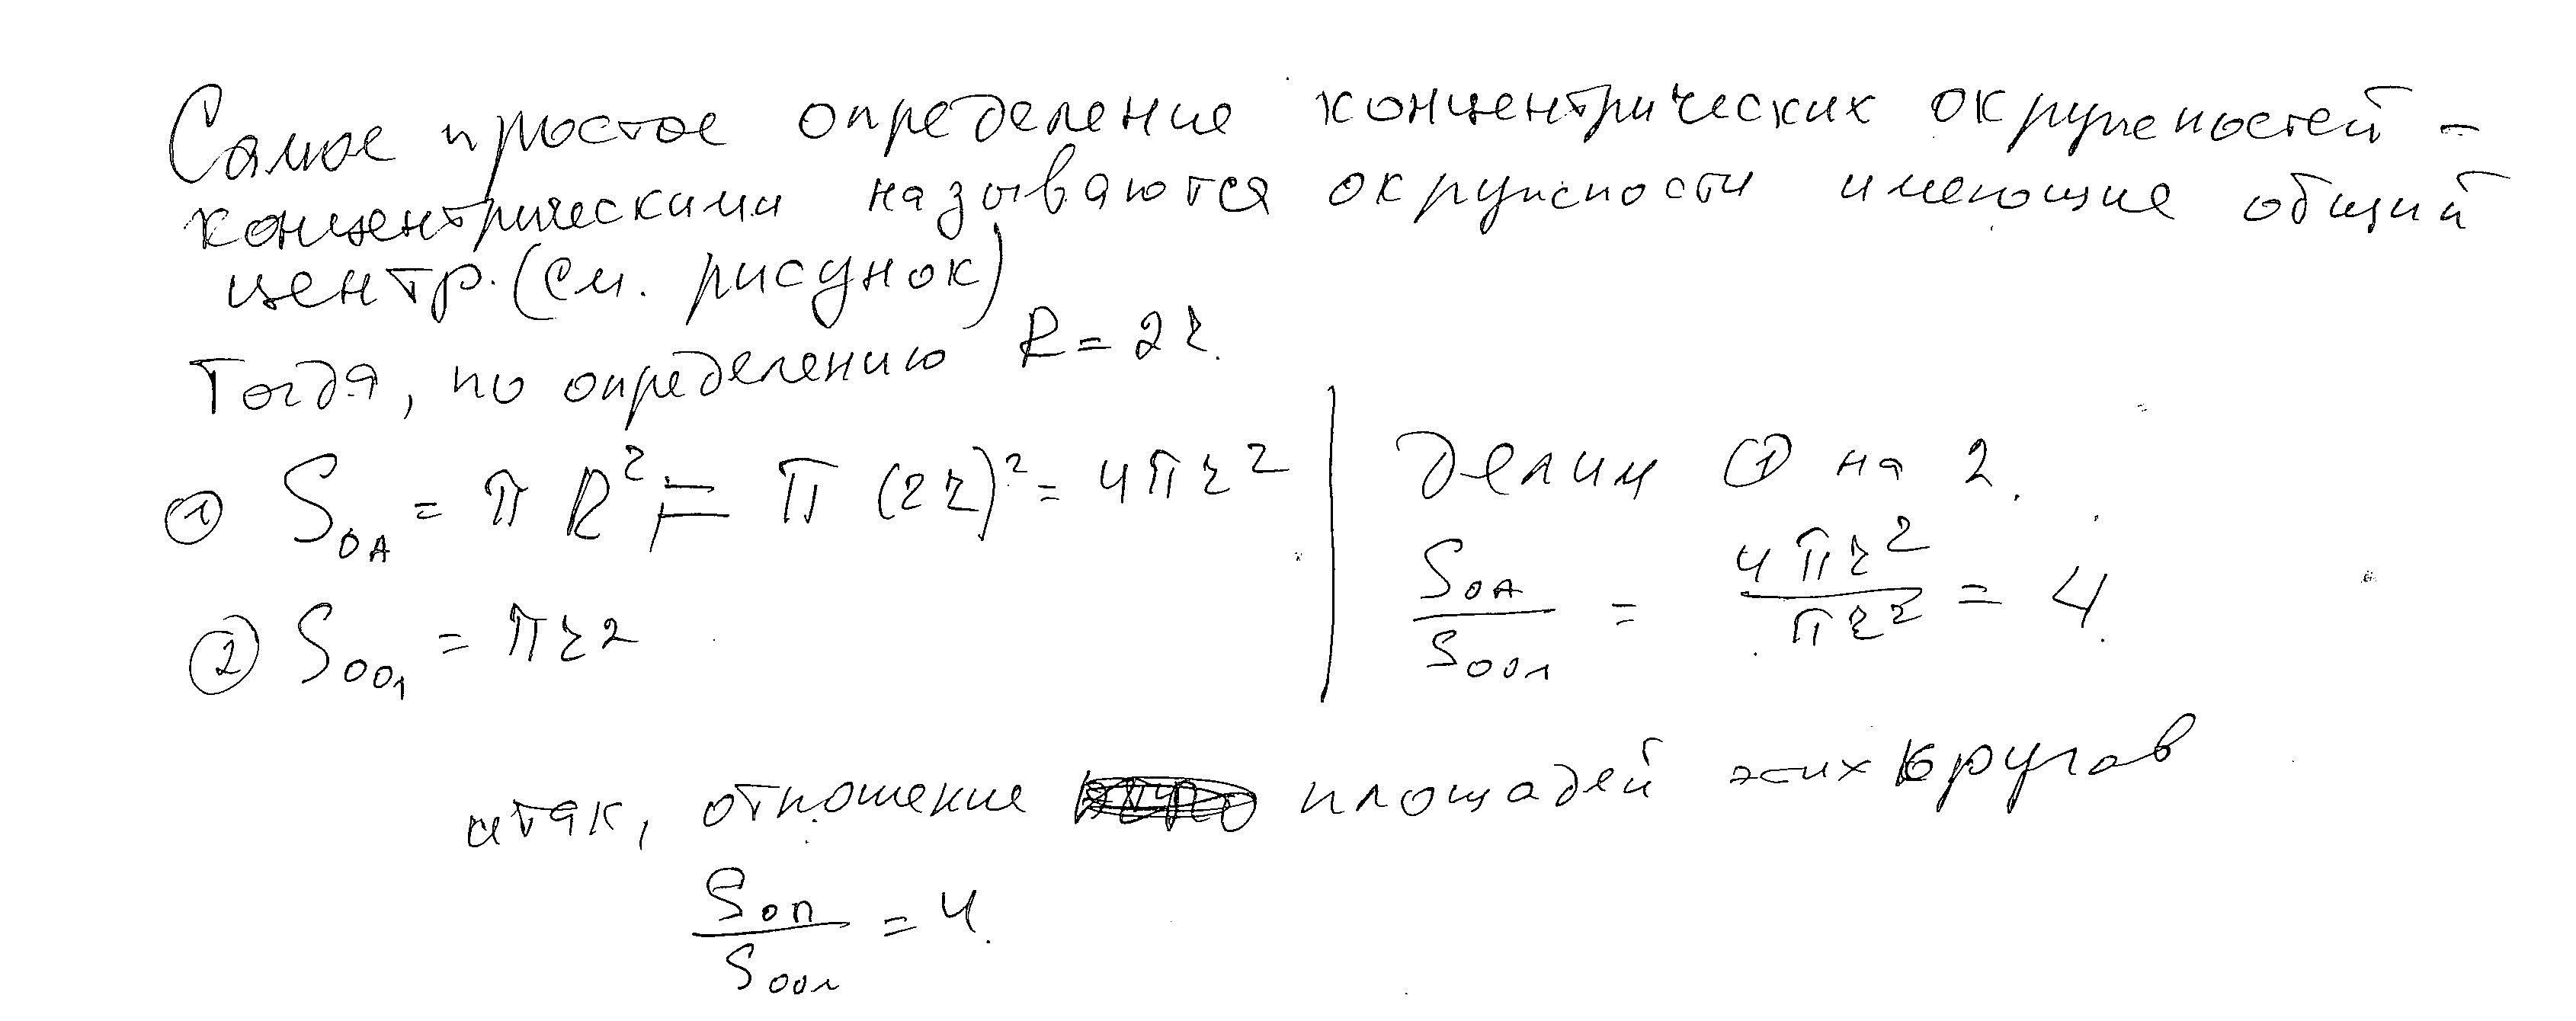 Самое простое определение концентрических окружностей -
концентрическими называются окружности имеющие общий
центр. (см. рисунок)
Тогда, по определению R = 2r.
① S_OA = πR² = π(2r)² = 4πr²
② S_OO₁ = πr2
делим ① на 2.
S_OA / S_OO1 = 4πr² / πr² = 4.
итак, отношение площадей этих кругов
S_OA / S_OO1 = 4.